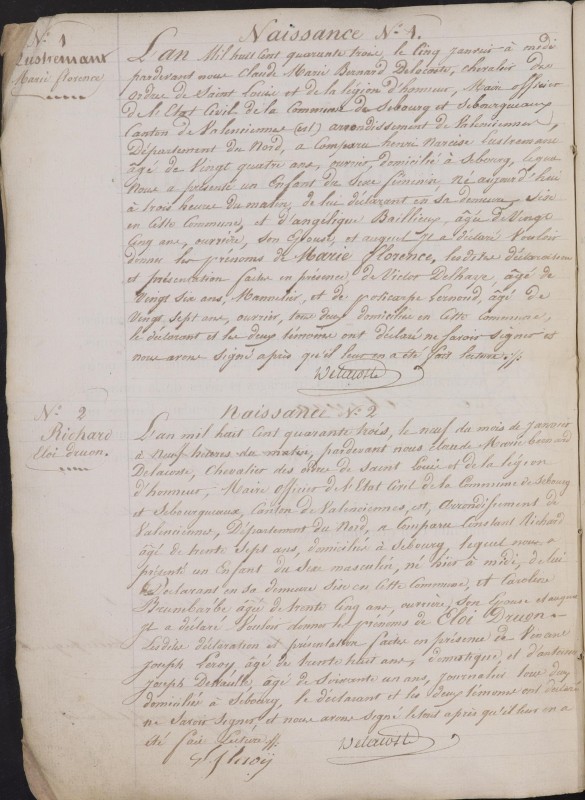 Naissance N.° 1.
N.° 1
Lustremant
Marie florence
L'an Mil huit Cent quarante trois, le Cinq Janvier à midi
pardevant nous Claude Marie Bernard Delacoste, chevalier des
ordre de Saint Louis et de la légion d'honneur, Maire officier
de l'Etat Civil de la Commune de Sebourg et Sebourquiaux
Canton de Valenciennes (est) arrondissement de Valenciennes,
Département du Nord, a Comparu henri Narcisse Lustremant
âgé de Vingt quatre ans, ouvrier, domicilié à Sebourg, lequel
Nous a présenté un Enfant du Sexe féminin, né aujourd'hui
à trois heure du matin, de lui déclarant en sa demeure, sise
en Cette Commune, et d'angélique Baillieux, âgée de Vingt
Cinq ans, ouvrière, son Epouse, et auquel Il a déclaré Vouloir
donner les prénoms de Marie florence, lesdites déclaration
et présentation faites en présence, de Victor Delhaye, âgé de
Vingt six ans, et de policarpe Gernond, âgé de
Vingt sept ans, ouvrier, tous deux domiciliés en Cette Commune,
le déclarant et les deux témoins ont déclaré ne savoir signer et
nous avons signé après qu'il leur en a été fait lecture.
Delacoste
Naissance N.° 2
N.° 2
Richard
Eloi druon.
L'an mil huit Cent quarante trois, le neuf du mois de janvier
à neuf heures du matin, pardevant nous claude Marie bernard
Delacoste, Chevalier des ordre de Saint Louis et de la légion
d'honneur, Maire officier de l'Etat Civil de la Commune de Sebourg
et Sebourquiaux, Canton de Valenciennes, est, Arrondissement de
Valenciennes, Département du Nord, a Comparu Constant Richard
âgé de trente sept ans, domicilié à Sebourg, lequel nous a
présenté un Enfant du Sexe masculin, né hier à midi, de lui
Déclarant en sa demeure sise en Cette Commune, et Caroline
Brumbarbe âgée de trente Cinq ans, ouvrière, son Epouse et auquel
Il a déclaré Vouloir donner le prénoms de Eloi Druon.
Lesdites déclaration et présentation faites en présence de Vincent
Joseph Leroy, âgé de trente huit ans, domestique et d'antoine
Joseph âgé de Soixante un ans, journalier tous deux
domiciliés à Sebourg, le déclarant et les deux témoins ont déclaré
ne savoir Signer, et nous avons signé le tout après qu'il leur en a
été fait Lecture.
Delacoste
leroy